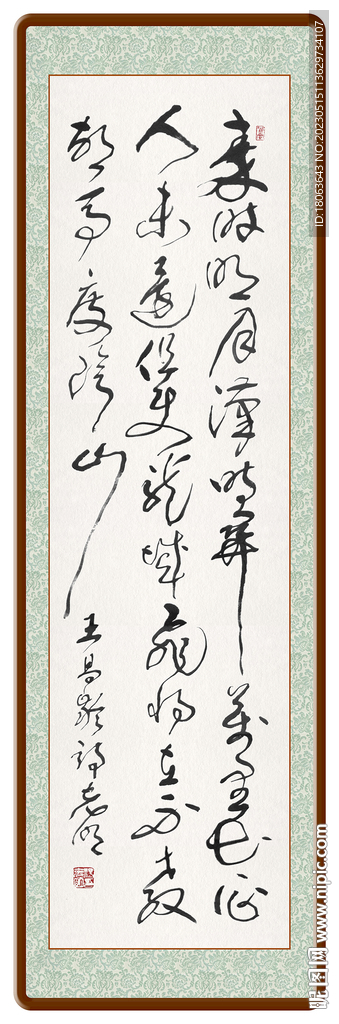 秦时明月汉时关万里长征
人未还但使龙城飞将在不教
胡马度阴山
王昌龄诗志明
ID:18063643 NO:20230515113629734107
昵图网 www.nipic.com